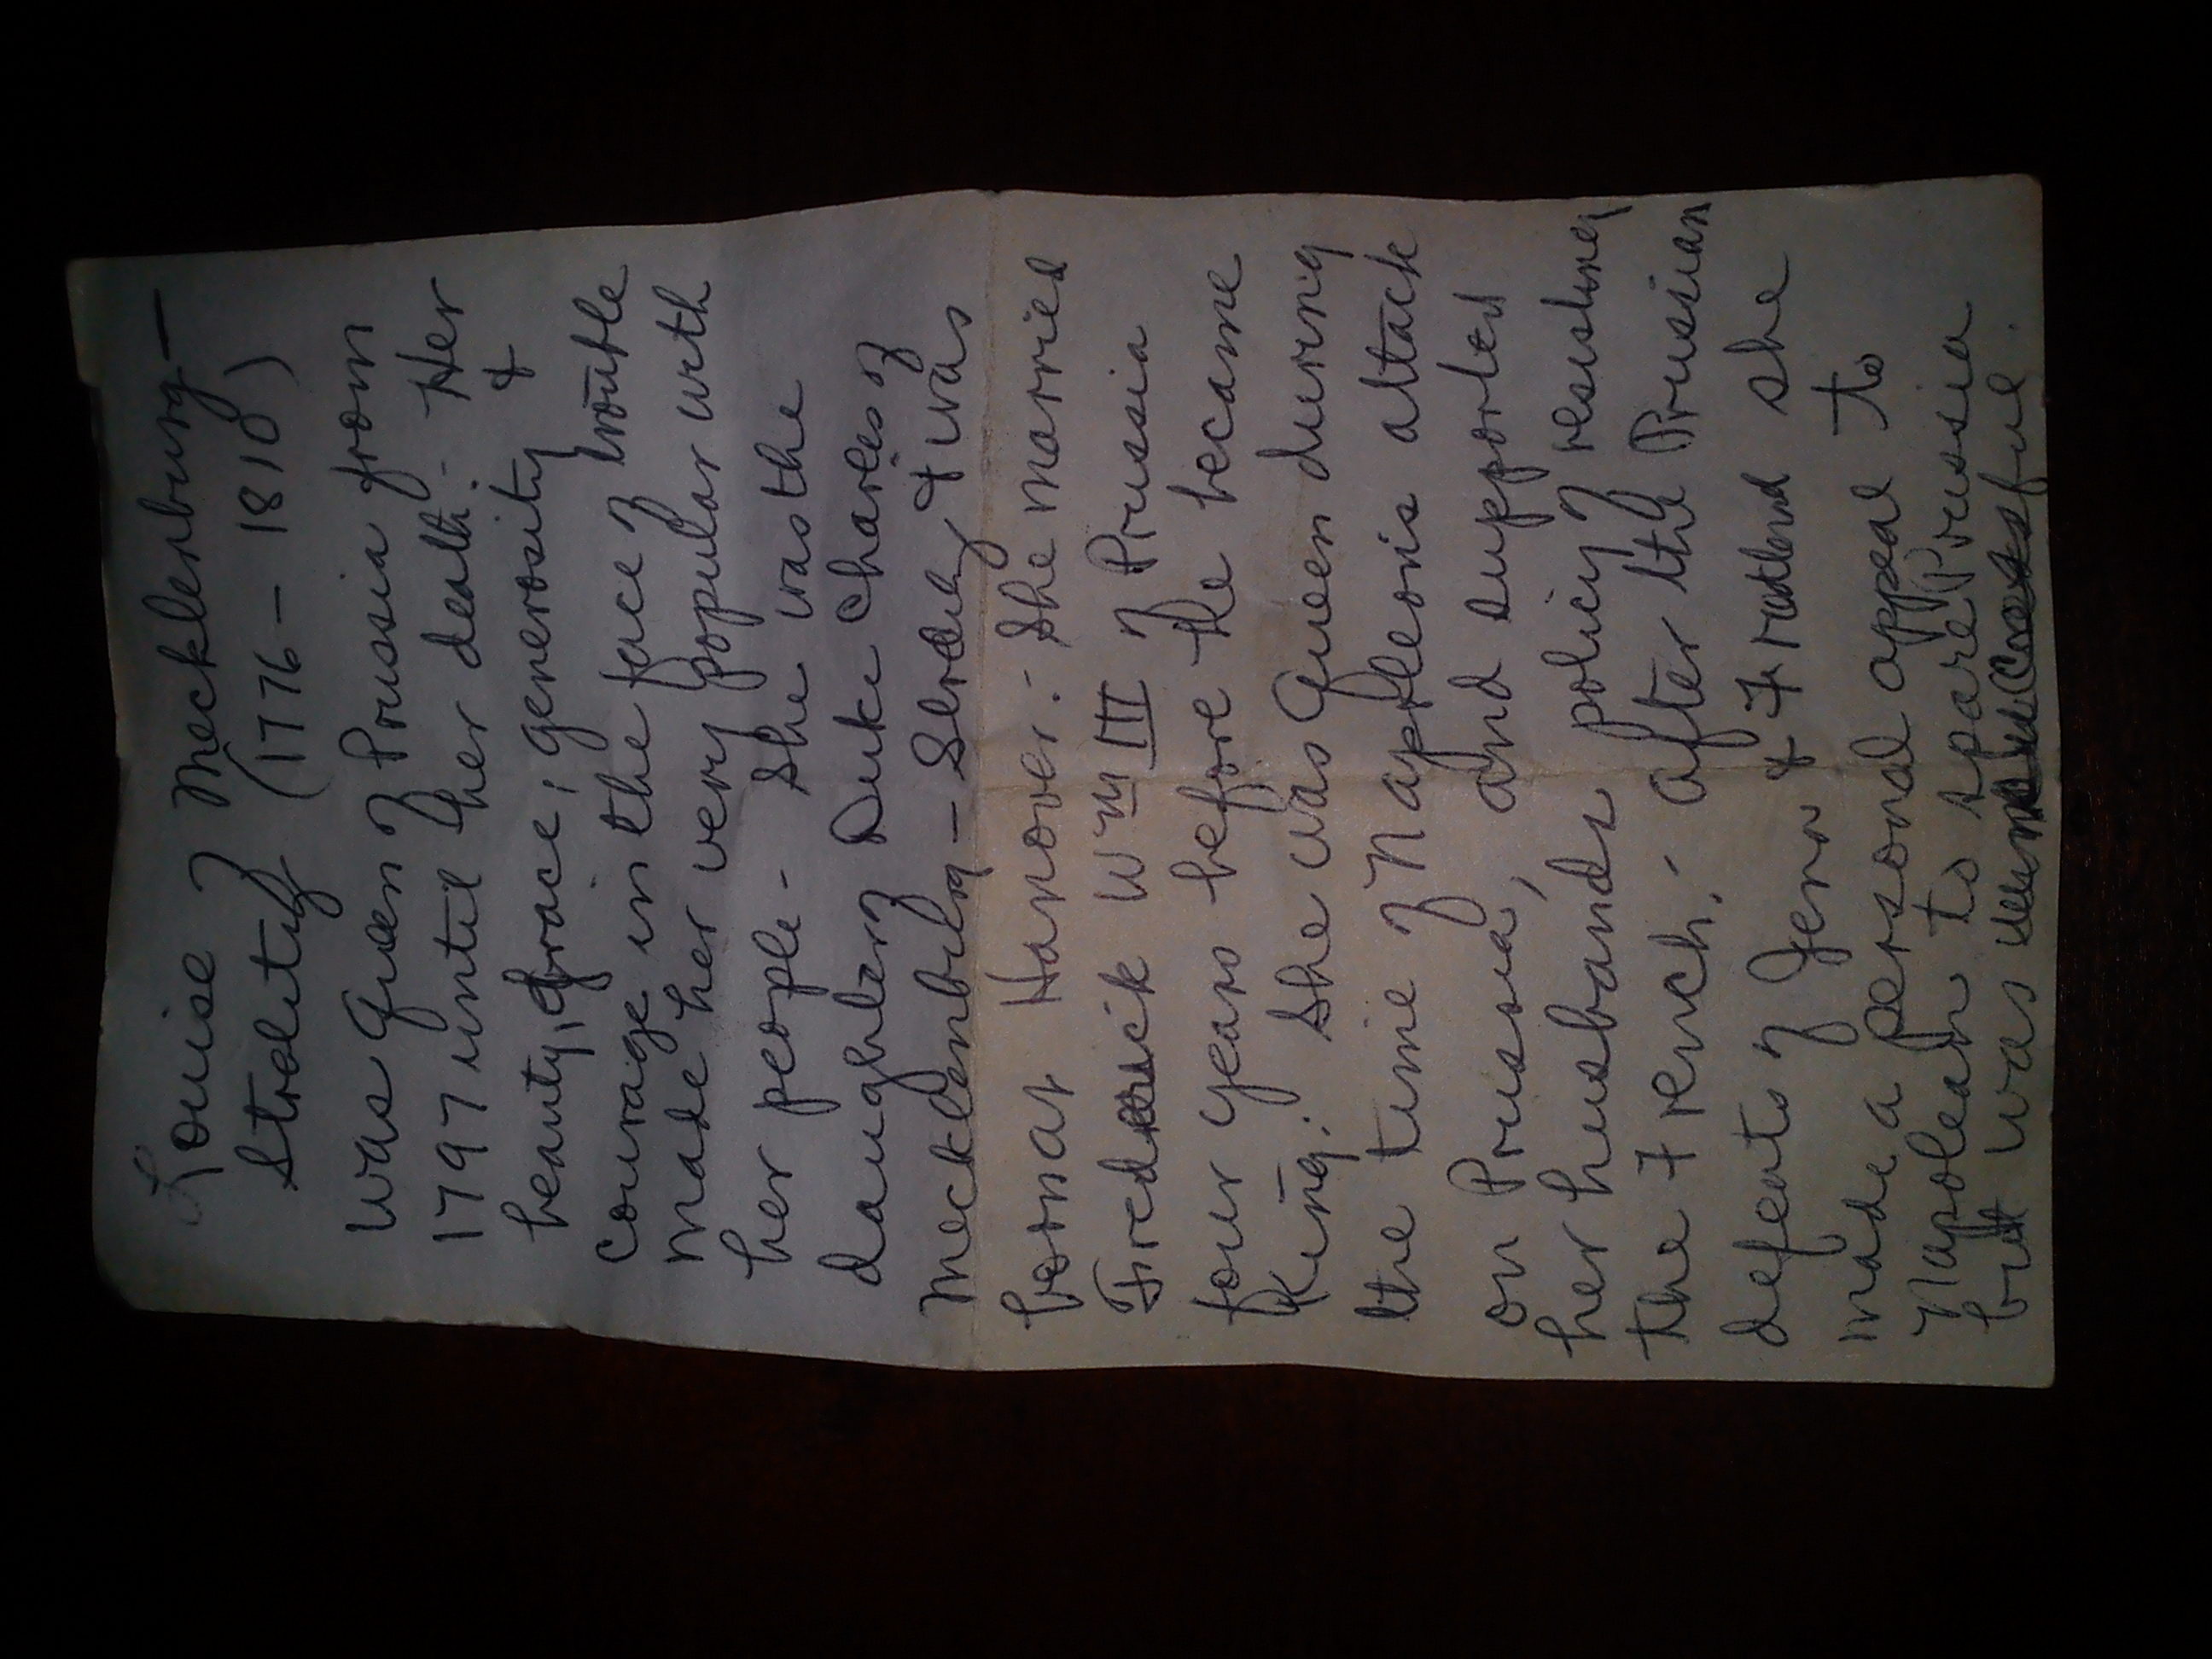 Louise of Mecklenburg-
Strelitz (1776 - 1810)
was Queen of Prussia from
1797 until her death. Her
beauty, grace, generosity &
courage in the face of trouble
made her very popular with
her people - She was the
daughter of Duke Charles of
Mecklenburg - & was
born at Hanover. She married
Frederick Wm III of Prussia
four years before the became
King. She was Queen during
the time of Napoleons attack
on Prussia, and supported
her husbands policy of resisting
the French. - after the Prussian
defeats of Jena & she
made a personal appeal to
Napoleon to spare Prussia
but was